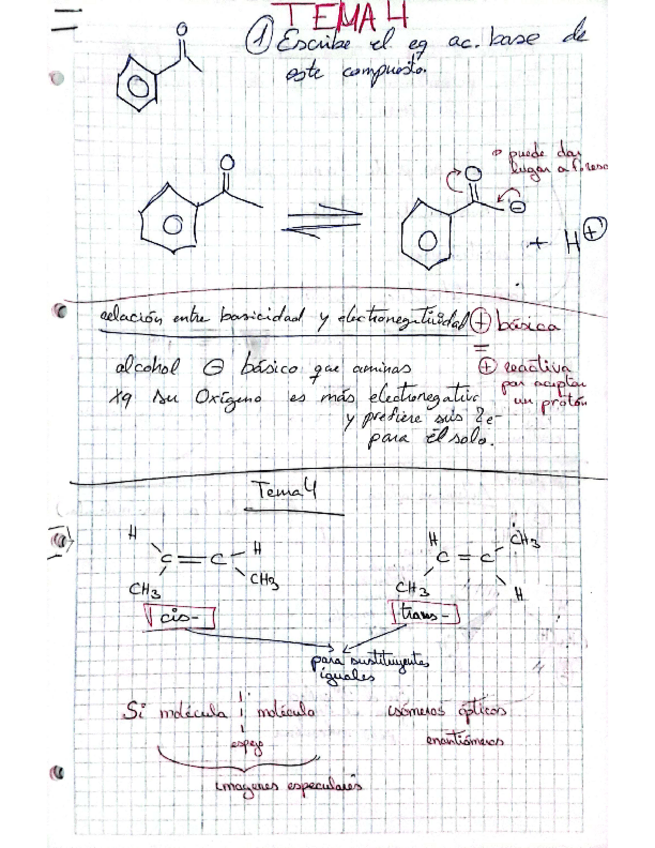 TEMA 4
① Escribe el eq ac. base de
este compuesto.
O
O
O
⊖
→ puede dar
lugar a f. reso
+ H⊕
relación entre basicidad y electronegatividad
⊕ básica
=
⊕ reactiva
por aceptar
un protón
alcohol ⊖ básico que aminas
xq su Oxígeno es más electronegativo
y prefiere sus 2e-
para él solo.
Tema 4
H
C = C
H
CH3
CH3
cis-
H
C = C
CH3
CH3
H
trans-
para sustituyentes
iguales
Si molécula molécula
espejo
imagenes especulares
isómeros ópticos
enantiómeros